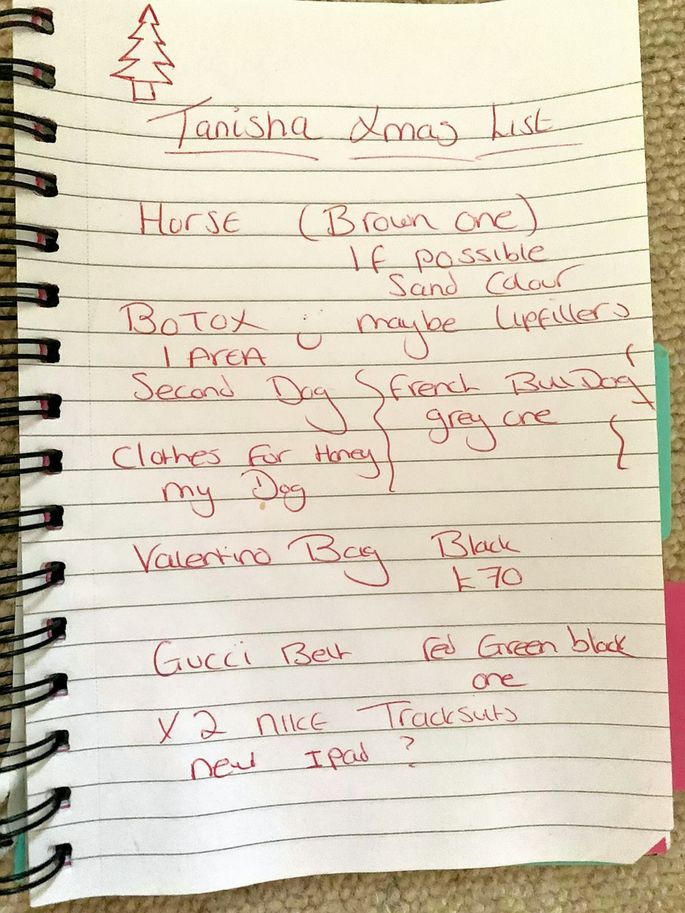 Tanisha Xmas List
Horse (Brown one)
If possible
Sand Colour
BOTOX maybe Lipfillers
1 AREA
Second Dog French Bull Dog
grey one
Clothes For Honey
my Dog
Valentino Bag Black
£70
Gucci Belt red Green black
one
X 2 NIKE Tracksuits
new Ipad ?